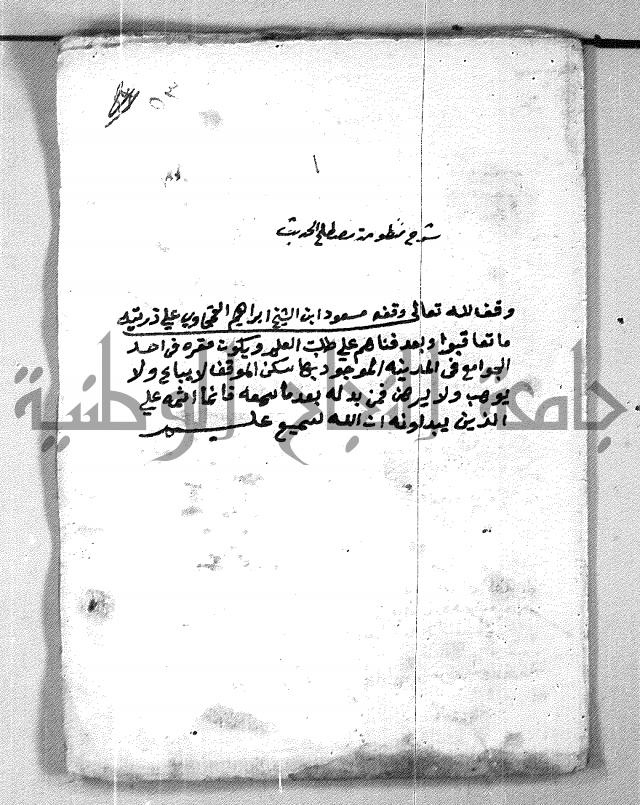 شرح منظومة مصطلح الحديث
وقف لله تعالى وقفه مسعود ابن الشيخ ابراهيم على ذريته
ما تعاقبوا وبعد فناهم على طلبت العلم ويكون مقره في احد
الجوامع في المدينه الموجود بها سكن الموقف لا يباع ولا
يوهب ولا يرهن فمن بدله بعدما سمعه فانما اثمه على
الذين يبدلونه ان الله سميع عليم
جامعة النجاح الوطنية